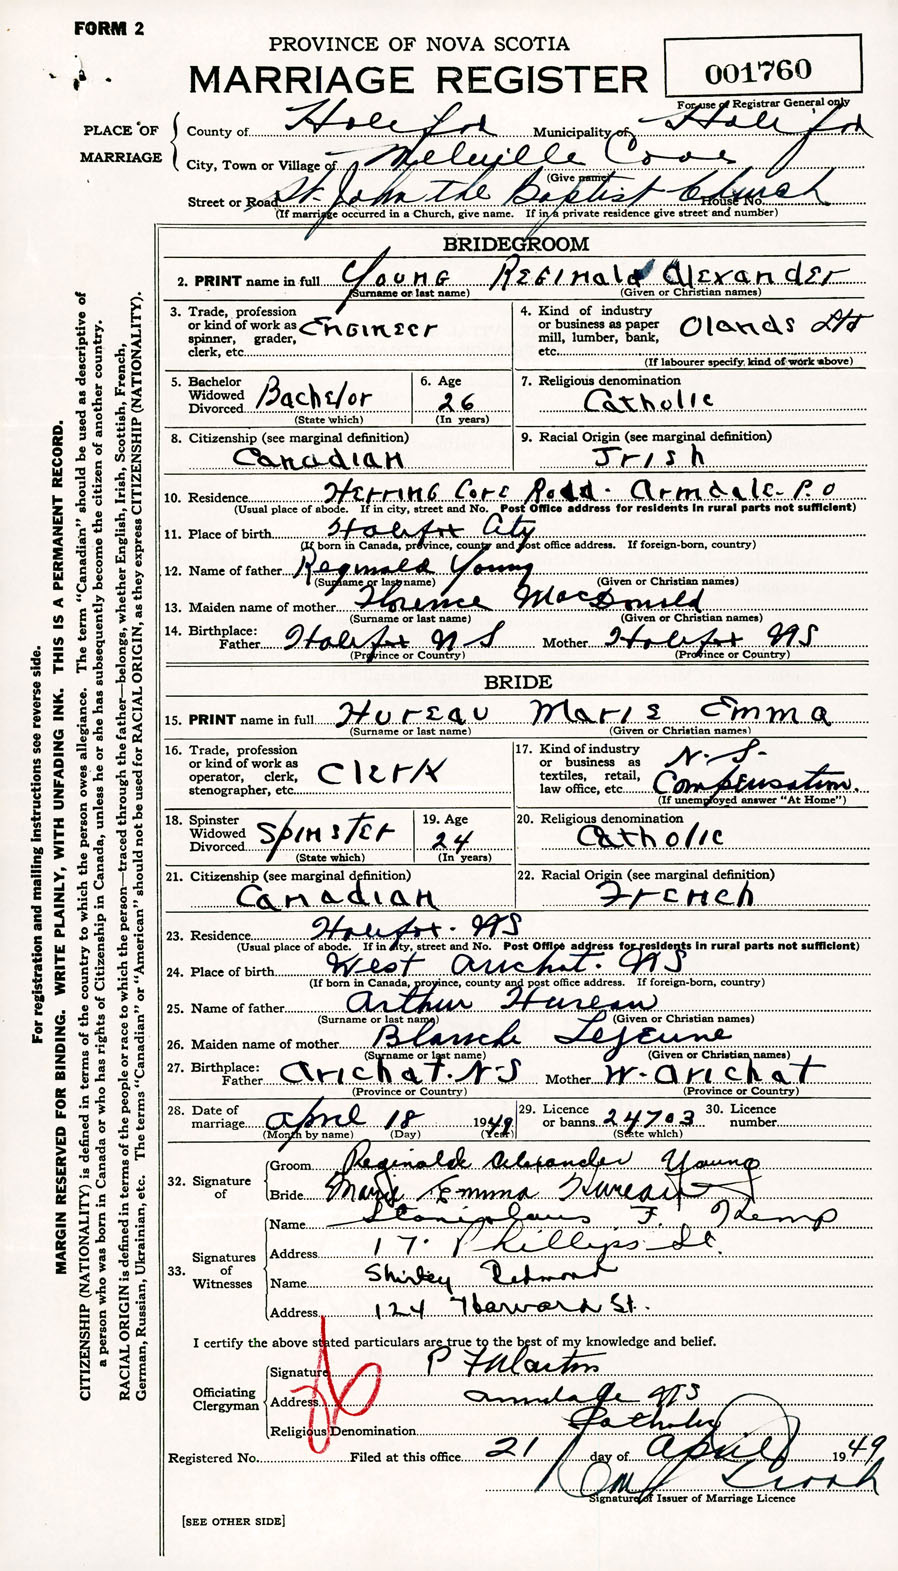 FORM 2
PROVINCE OF NOVA SCOTIA
MARRIAGE REGISTER
001760
For use of Registrar General only
PLACE OF MARRIAGE
County of Halifax Municipality of Halifax
City, Town or Village of Melville Cove
(Give name)
Street or Road St. John the Baptist Church House No.
(If marriage occurred in a Church, give name. If in a private residence give street and number)
BRIDEGROOM
2. PRINT name in full Young Reginald Alexander
(Surname or last name) (Given or Christian names)
3. Trade, profession or kind of work as spinner, grader, clerk, etc. Engineer
4. Kind of industry or business as paper mill, lumber, bank, etc. Olands Ltd
(If labourer specify, kind of work above)
5. Bachelor Widowed Divorced Bachelor
(State which)
6. Age 26
(In years)
7. Religious denomination
Catholic
8. Citizenship (see marginal definition)
Canadian
9. Racial Origin (see marginal definition)
Irish
10. Residence Herring Cove Road. Armdale P.O
(Usual place of abode. If in city, street and No. Post Office address for residents in rural parts not sufficient)
11. Place of birth Halifax City
(If born in Canada, province, county and post office address. If foreign-born, country)
12. Name of father Reginald Young
(Surname or last name) (Given or Christian names)
13. Maiden name of mother Florence MacDonald
(Surname or last name) (Given or Christian names)
14. Birthplace: Father Halifax N S Mother Halifax NS
(Province or Country) (Province or Country)
BRIDE
15. PRINT name in full Hureau Marie Emma
(Surname or last name) (Given or Christian names)
16. Trade, profession or kind of work as operator, clerk, stenographer, etc. Clerk
17. Kind of industry or business as textiles, retail, law office, etc. N.S. Compensation.
(If unemployed answer "At Home")
18. Spinster Widowed Divorced Spinster
(State which)
19. Age 24
(In years)
20. Religious denomination
Catholic
21. Citizenship (see marginal definition)
Canadian
22. Racial Origin (see marginal definition)
French
23. Residence Halifax. NS
(Usual place of abode. If in city, street and No. Post Office address for residents in rural parts not sufficient)
24. Place of birth West Arichat. NS
(If born in Canada, province, county and post office address. If foreign-born, country)
25. Name of father Arthur Hureau
(Surname or last name) (Given or Christian names)
26. Maiden name of mother Blanche LeJeune
(Surname or last name) (Given or Christian names)
27. Birthplace: Father Arichat. N-S Mother W. Arichat
(Province or Country) (Province or Country)
28. Date of marriage April 18 1949
(Month by name) (Day) (Year)
29. Licence or banns 24703
(State which)
30. Licence number
32. Signature of
Groom Reginald Alexander Young
Bride Marie Emma Hureau
33. Signatures of Witnesses
Name Stanislaus F. Kemp
Address 17. Phillips St.
Name Shirley Redmond
Address 124 Harvard St.
I certify the above stated particulars are true to the best of my knowledge and belief.
Officiating Clergyman
Signature P F Martin
Address Armdale NS
Religious Denomination Catholic
Registered No. Filed at this office 21 day of April 1949
Signature of Issuer of Marriage Licence
[SEE OTHER SIDE]
For registration and mailing instructions see reverse side.
MARGIN RESERVED FOR BINDING. WRITE PLAINLY, WITH UNFADING INK. THIS IS A PERMANENT RECORD.
CITIZENSHIP (NATIONALITY) is defined in terms of the country to which the person owes allegiance. The term "Canadian" should be used as descriptive of
a person who was born in Canada or who has rights of Citizenship in Canada, unless he or she has subsequently become the citizen of another country.
RACIAL ORIGIN is defined in terms of the people or race to which the person—traced through the father—belongs, whether English, Irish, Scottish, French,
German, Russian, Ukrainian, etc. The terms "Canadian" or "American" should not be used for RACIAL ORIGIN, as they express CITIZENSHIP (NATIONALITY).